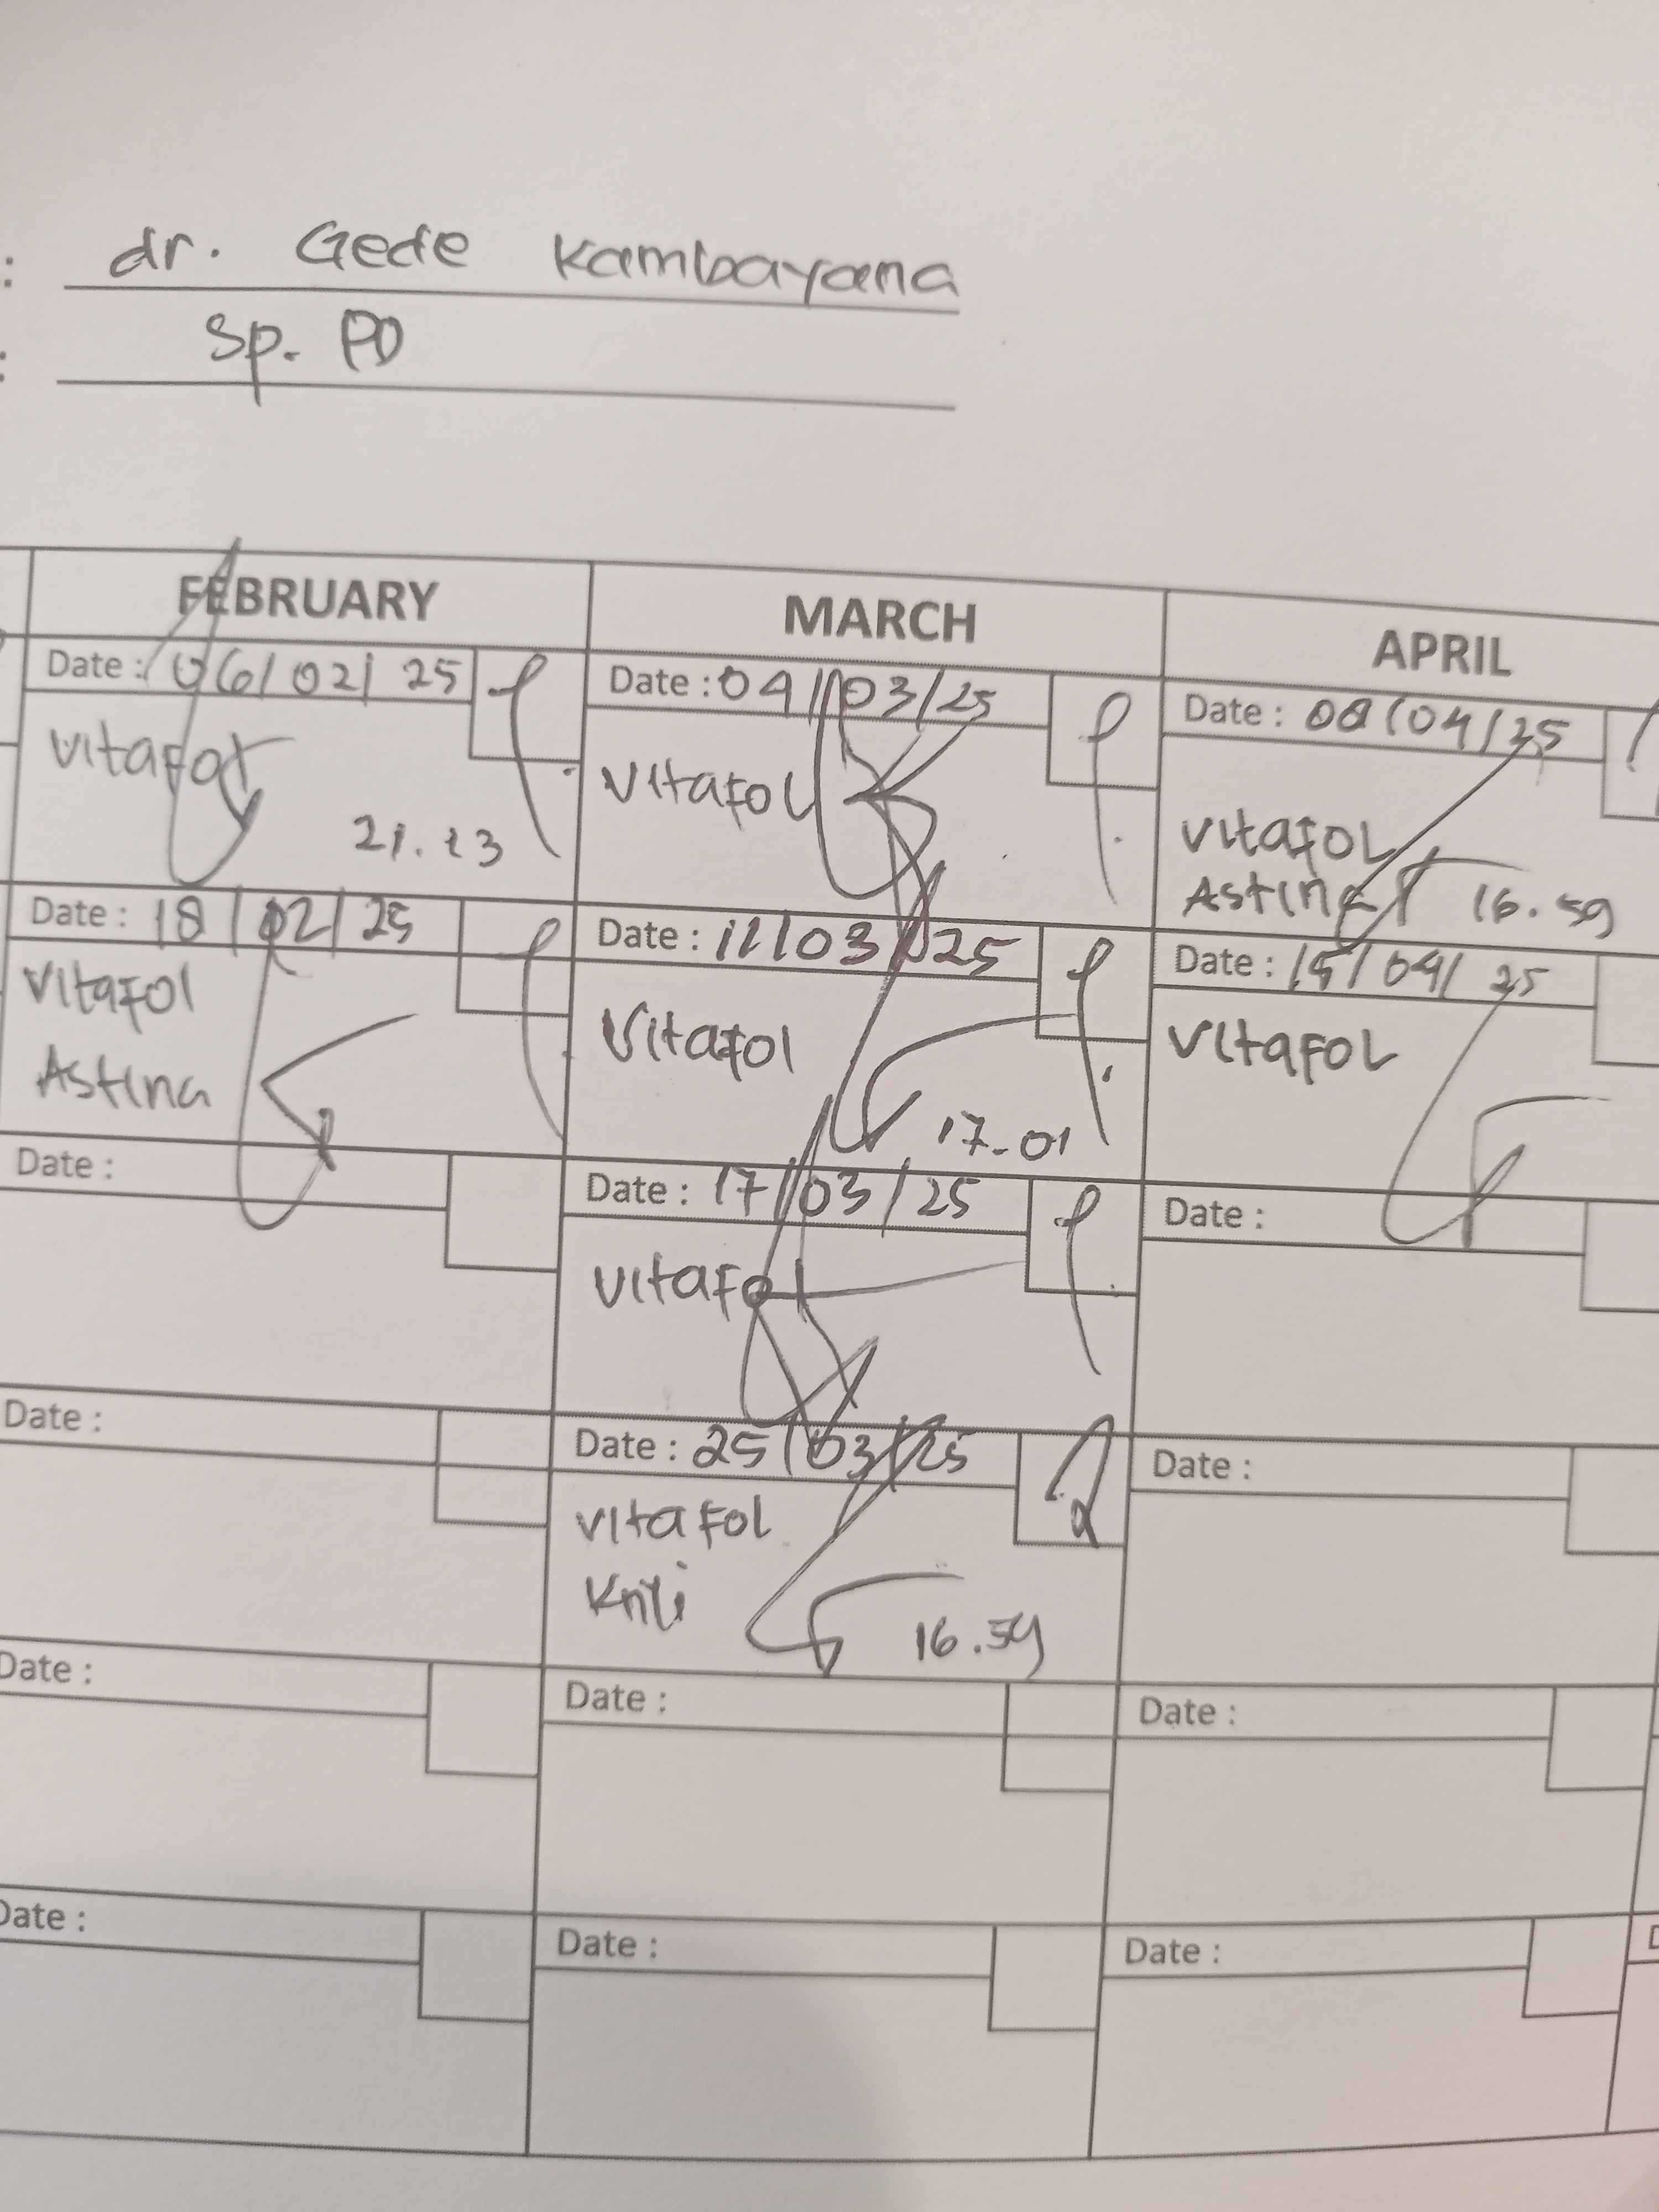 : dr. Gede Kambayana
: Sp. PD
FEBRUARY MARCH APRIL
Date : 06/02/25
Vitafol
21.13
Date : 04/03/25
Vitafol
Date : 08/04/25
Vitafol
Astina 16.59
Date : 18/02/25
Vitafol
Astina
Date : 11/03/25
Vitafol
17-01
Date : 15/04/25
Vitafol
Date :
Date : 17/03/25
Vitafol
Date :
Date :
Date : 25/03/25
Vitafol
16.59
Date :
Date :
Date :
Date :
Date :
Date :
Date :